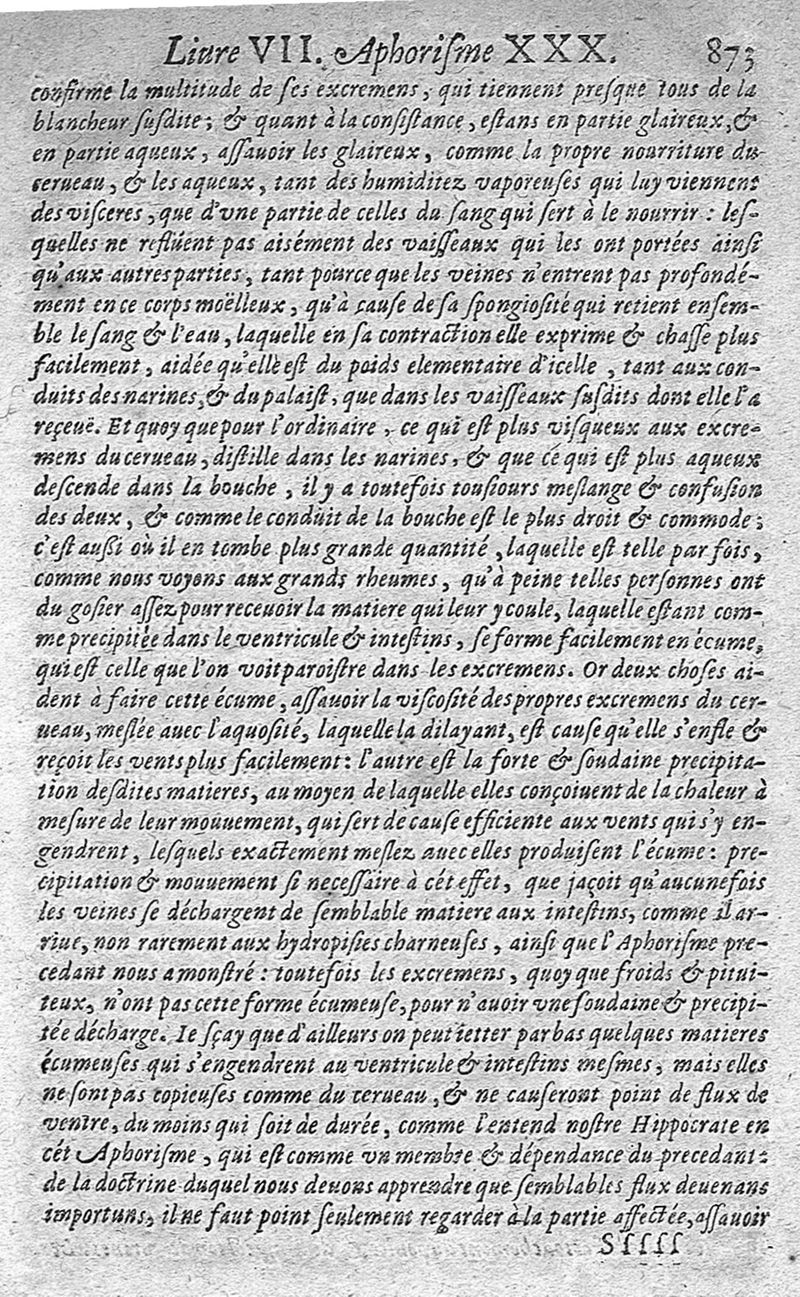 Liure VII. Aphoriſme XXX. 873
confirme la multitude de ſes excremens, qui tiennent preſque tous de la
blancheur ſuſdite; & quant à la conſiſtance, eſtans en partie glaireux, &
en partie aqueux, aſſauoir les glaireux, comme la propre nourriture du
cerueau, & les aqueux, tant des humiditez vaporeuſes qui luy viennent
des viſceres, que d'vne partie de celles du ſang qui ſert à le nourrir : leſ-
quelles ne refluent pas aisément des vaiſſeaux qui les ont portées ainſi
qu'aux autres parties, tant pource que les veines n'entrent pas profondé-
ment en ce corps moëlleux, qu'à cauſe de ſa ſpongioſité qui retient enſem-
ble le ſang & l'eau, laquelle en ſa contraction elle exprime & chaſſe plus
facilement, aidée qu'elle eſt du poids elementaire d'icelle, tant aux con-
duits des narines, & du palaiſt, que dans les vaiſſeaux ſuſdits dont elle l'a
reçeuë. Et quoy que pour l'ordinaire, ce qui eſt plus viſqueux aux excre-
mens du cerueau, diſtille dans les narines, & que ce qui eſt plus aqueux
deſcende dans la bouche, il y a toutefois touſiours meſlange & confuſion
des deux, & comme le conduit de la bouche eſt le plus droit & commode;
c'eſt auſſi où il en tombe plus grande quantité, laquelle eſt telle par fois,
comme nous voyons aux grands rheumes, qu'à peine telles perſonnes ont
du goſier aſſez pour receuoir la matiere qui leur y coule, laquelle eſtant com-
me precipitée dans le ventricule & inteſtins, ſe forme facilement en écume,
qui eſt celle que l'on voit paroiſtre dans les excremens. Or deux choſes ai-
dent à faire cette écume, aſſauoir la viſcoſité des propres excremens du cer-
ueau, meſlée auec l'aquoſité, laquelle la dilayant, eſt cauſe qu'elle s'enfle &
reçoit les vents plus facilement : l'autre eſt la forte & ſoudaine precipita-
tion deſdites matieres, au moyen de laquelle elles conçoiuent de la chaleur à
meſure de leur mouuement, qui ſert de cauſe efficiente aux vents qui s'y en-
gendrent, leſquels exactement meſlez auec elles produiſent l'écume : pre-
cipitation & mouuement ſi neceſſaire à cét effet, que jaçoit qu'aucunefois
les veines ſe déchargent de ſemblable matiere aux inteſtins, comme il ar-
riue, non rarement aux hydropiſies charneuſes, ainſi que l'Aphoriſme pre-
cedant nous a monſtré : toutefois les excremens, quoy que froids & pitui-
teux, n'ont pas cette forme écumeuſe, pour n'auoir vne ſoudaine & precipi-
tée décharge. Ie ſçay que d'ailleurs on peut ietter par bas quelques matieres
écumeuſes qui s'engendrent au ventricule & inteſtins meſmes, mais elles
ne ſont pas copieuſes comme du cerueau, & ne cauſeront point de flux de
ventre, du moins qui ſoit de durée, comme l'entend noſtre Hippocrate en
cét Aphoriſme, qui eſt comme vn membre & dépendance du precedant :
de la doctrine duquel nous deuons apprendre que ſemblables flux deuenans
importuns, il ne faut point ſeulement regarder à la partie affectée, aſſauoir
Sſſſſ